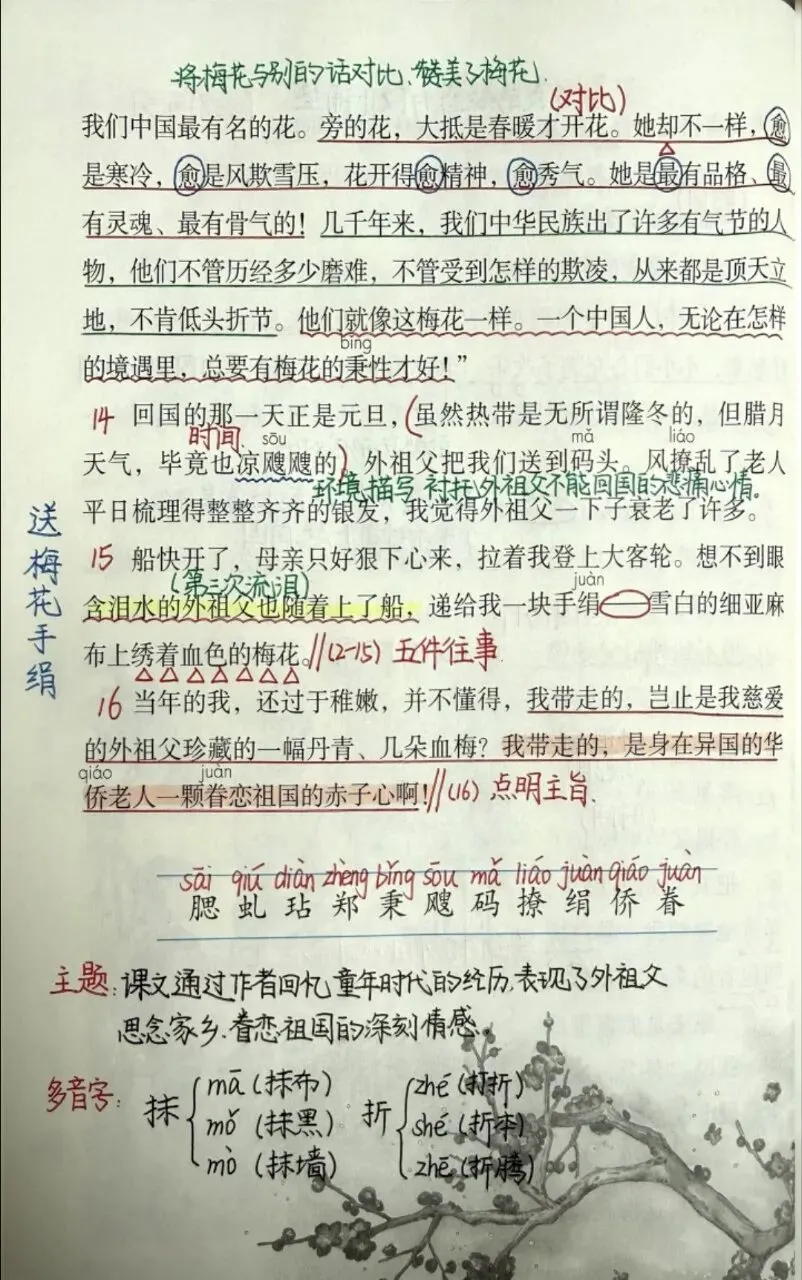 将梅花与别的话对比、赞美了梅花.
(对比)
我们中国最有名的花。旁的花，大抵是春暖才开花。她却不一样，愈
是寒冷，愈是风欺雪压，花开得愈精神，愈秀气。她是最有品格、最
有灵魂、最有骨气的！几千年来，我们中华民族出了许多有气节的人
物，他们不管历经多少磨难，不管受到怎样的欺凌，从来都是顶天立
地，不肯低头折节。他们就像这梅花一样。一个中国人，无论在怎样
bǐng
的境遇里，总要有梅花的秉性才好！”
14 回国的那一天正是元旦，(虽然热带是无所谓隆冬的，但腊月
时间 sōu mǎ liáo
天气，毕竟也凉飕飕的)外祖父把我们送到码头。风撩乱了老人
环境描写 衬托外祖父不能回国的悲痛心情。
平日梳理得整整齐齐的银发，我觉得外祖父一下子衰老了许多。
15 船快开了，母亲只好狠下心来，拉着我登上大客轮。想不到眼
(第三次流泪) juàn
含泪水的外祖父也随着上了船，递给我一块手绢——雪白的细亚麻
布上绣着血色的梅花。//(2-15) 五件往事
送梅花手绢
16 当年的我，还过于稚嫩，并不懂得，我带走的，岂止是我慈爱
的外祖父珍藏的一幅丹青、几朵血梅？我带走的，是身在异国的华
qiáo juàn
侨老人一颗眷恋祖国的赤子心啊！//(16) 点明主旨.
sāi qiú diàn zhèng bǐng sōu mǎ liáo juàn qiáo juàn
腮 虬 玷 郑 秉 飕 码 撩 绢 侨 眷
主题:课文通过作者回忆童年时代的经历,表现了外祖父
思念家乡、眷恋祖国的深刻情感。
多音字: 抹 mā (抹布) mǒ (抹黑) mò (抹墙)
折 zhé (打折) shé (折本) zhē (折腾)